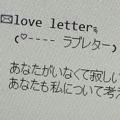 ✉love letter
(♡---- ラブレター)
あなたがいなくて寂しい
あなたも私について考え